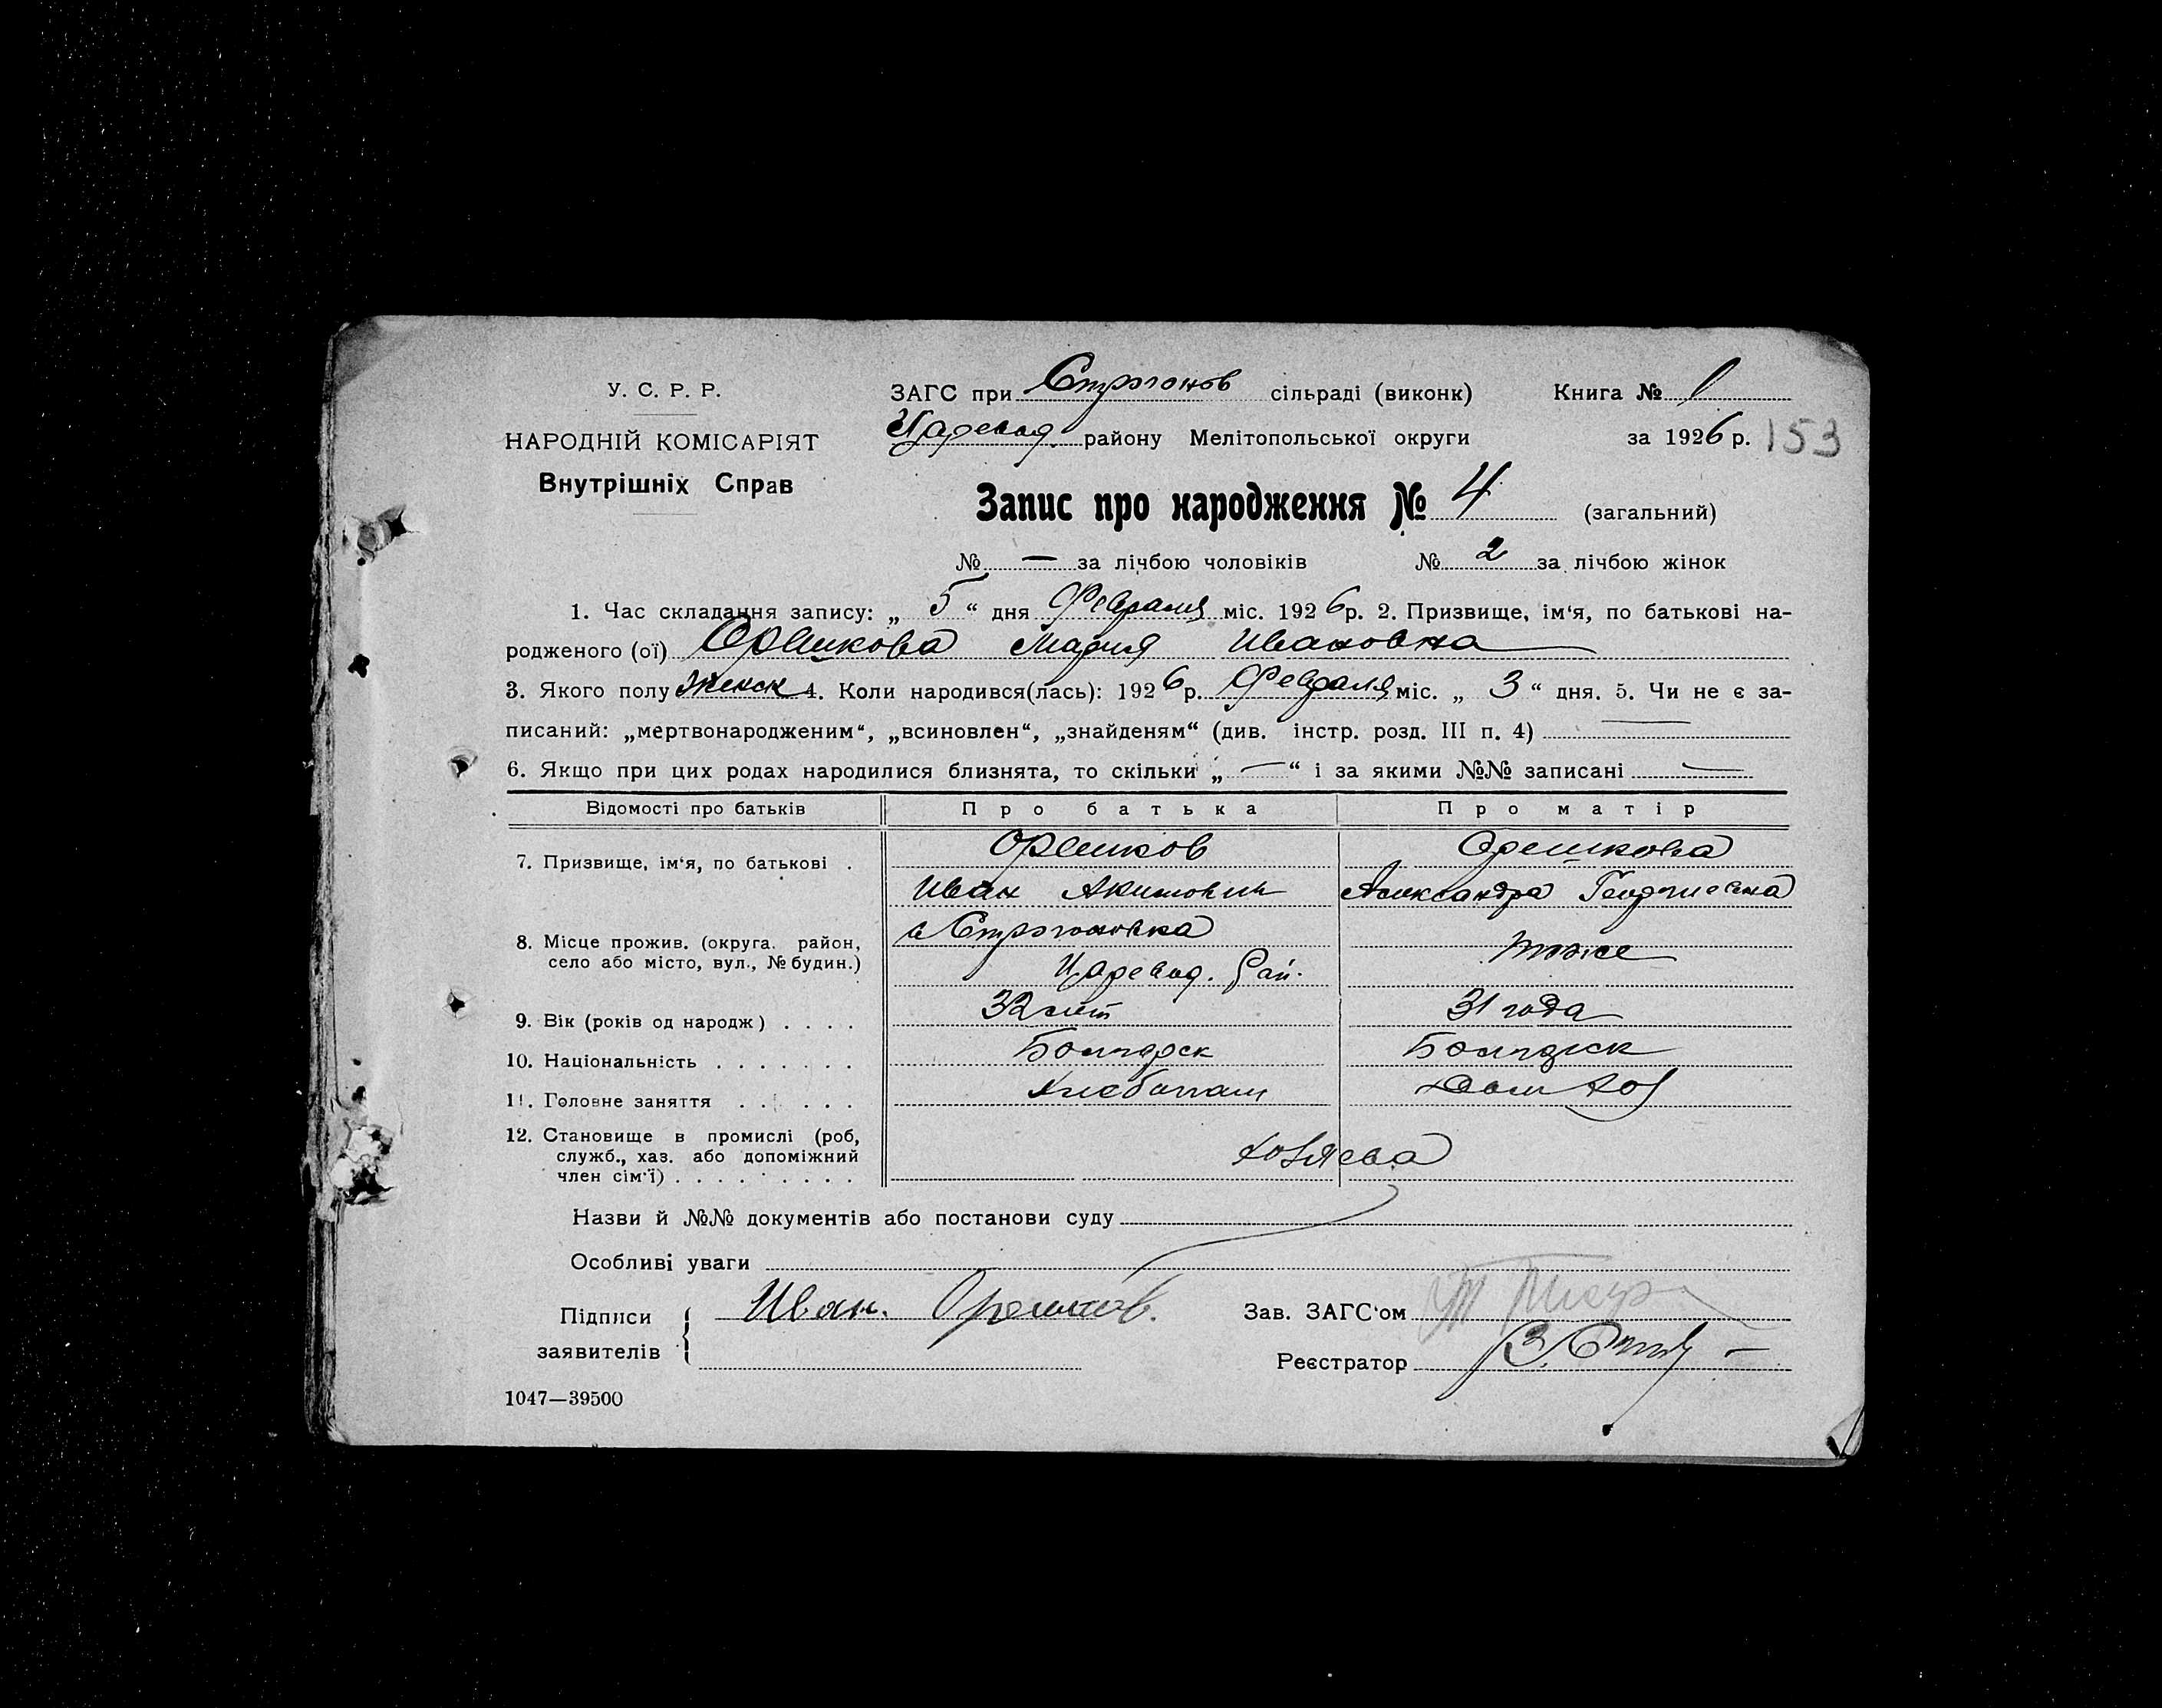 У. С. Р. Р.
НАРОДНІЙ КОМІСАРІЯТ
Внутрішніх Справ
ЗАГС при Строганов сільраді (виконк) Книга № 1
Царевод. району Мелітопольської округи за 1926 р. 153
Запис про народження № 4 (загальний)
№ — за лічбою чоловіків № 2 за лічбою жінок
1. Час складання запису: „ 5 “ дня Февраля міс. 1926 р. 2. Призвище, ім'я, по батькові на-
родженого (ої) Орешкова Мария Ивановна
3. Якого полу Женск 4. Коли народився(лась): 1926 р. Февраля міс. „ 3 “ дня. 5. Чи не є за-
писаний: „мертвонародженим“, „всиновлен“, „знайденям“ (див. інстр. розд. III п. 4) —
6. Якщо при цих родах народилися близнята, то скільки „ — “ і за якими №№ записані —
Відомості про батьків Про батька Про матір
7. Призвище, ім‘я, по батькові . Орешков Орешкова
Иван Акимович Александра Георгиевна
8. Місце прожив. (округа, район, село або місто, вул., № будин.) с Строгоновка тоже
Царевод. Рай.
9. Вік (років од народж) . . . . 32 лет 31 года
10. Національність . . . . . . . Болгарск Болгарск
11. Головне заняття . . . . . . Хлебопаш Дом хоз
12. Становище в промислі (роб, служб., хаз. або допоміжний член сім‘ї) . . . . . . . . . хозяева
Назви й №№ документів або постанови суду
Особливі уваги
Підписи заявителів Иван. Орешков. Зав. ЗАГС‘ом
Реєстратор
1047—39500